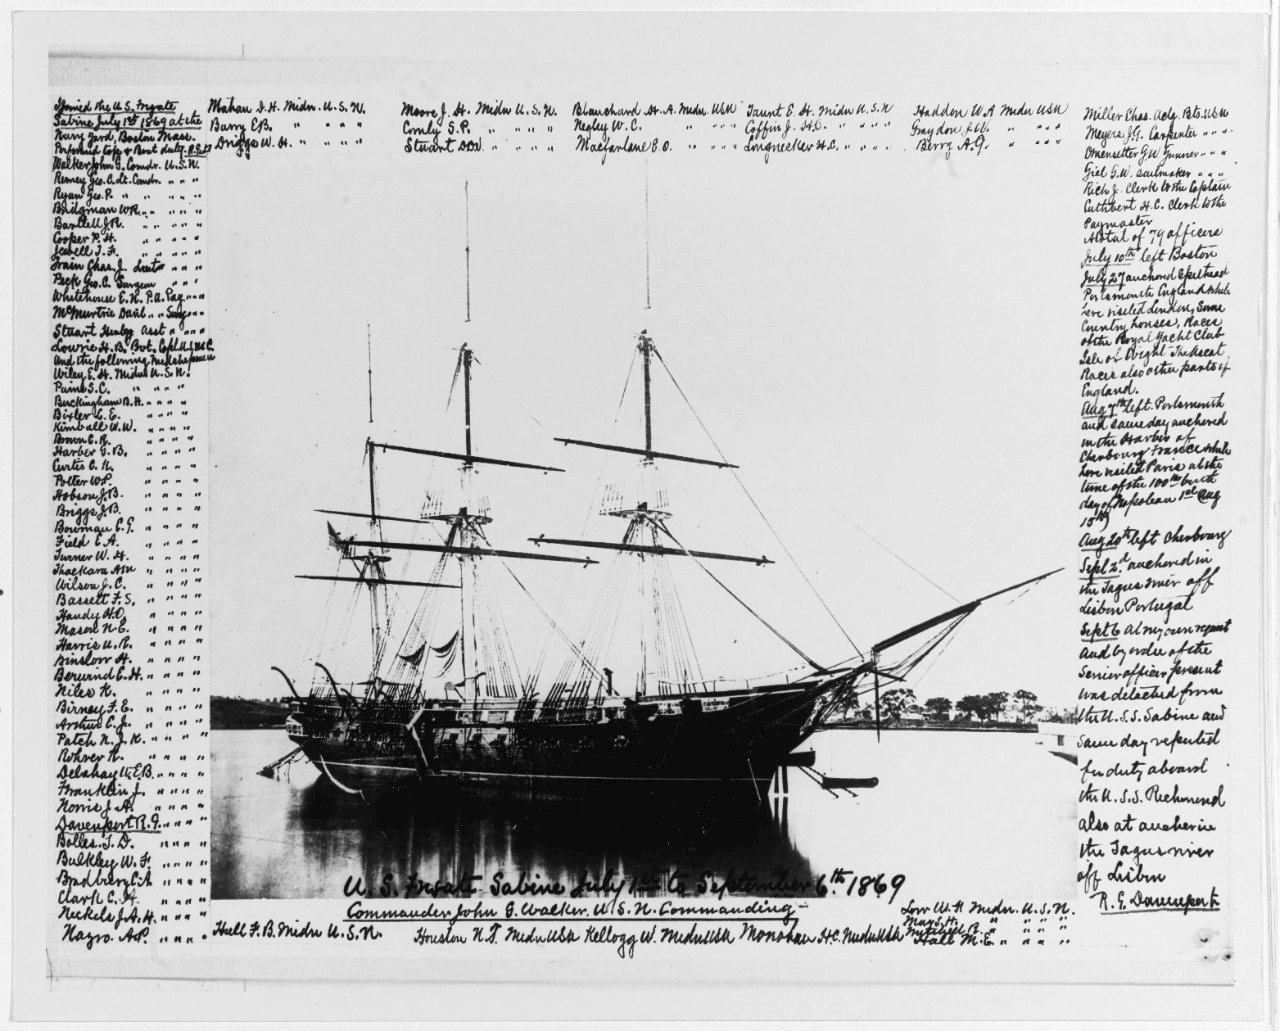 I joined the U.S. Frigate
Sabine July 1st 1869 at the
Navy Yard, Boston Mass.
Performed top & Boat duty. R.G.D
Walker John G. Comdr. U.S.N.
Remey Geo. C. Lt. Comdr. " " "
Ryan Geo. P. " " " " "
Bridgman W.R. " " " " "
Bartlett J.R. " " " " "
Cooper P.H. " " " " "
Jewell T.F. " " " " "
Train Chas. J. Lieut " " "
Peck Geo. C. Surgeon " " "
Whitehouse E.N. P.A. Pay " " "
McMurtrie Danl. " " Surg " " "
Stuart Henry Asst " " " "
Lowrie H.B. Bvt. Capt. U.S.M.C.
And the following Midshipmen
Wiley E.H. Midn U.S.N.
Paine S.C. " " " "
Buckingham B.H. " " " "
Bixler L.E. " " " "
Kimball W.W. " " " "
Brown C.R. " " " "
Harber G.B. " " " "
Curtis C.K. " " " "
Potter W.P. " " " "
Hobson J.B. " " " "
Briggs J.B. " " " "
Bowman C.G. " " " "
Field E.A. " " " "
Turner W.H. " " " "
Thackara A.M. " " " "
Wilson J.C. " " " "
Bassett F.S. " " " "
Handy H.O. " " " "
Mason N.E. " " " "
Harris U.R. " " " "
Winslow H. " " " "
Berwind E.H. " " " "
Niles K. " " " "
Birney F.E. " " " "
Arthur C.J. " " " "
Patch N.J.K. " " " "
Rohrer K. " " " "
Delahay W.E.B. " " " "
Franklin J. " " " "
Norris J.A. " " " "
Davenport R.G. " " " "
Bolles T.D. " " " "
Bulkley W.F. " " " "
Bradbury C.A. " " " "
Clark C.H. " " " "
Nickels J.A.H. " " " "
Nazro A.P. " " " "
Mahan D.H. Midn. U.S.N.
Barry E.B. " " " "
Driggs W.H. " " " "
Moore J.H. Midn U.S.N.
Comly S.P. " " " "
Stuart D.D.V. " " " "
Blanchard H.A. Midn. USN
Negley W.C. " " " "
Macfarlane E.O. " " " "
Taunt E.H. Midn U.S.N
Coffin J.H.C. " " " "
Longnecker H.C. " " " "
Haddon W.A Midn USN
Graydon J.W. " " " "
Berry A.G. " " " "
Miller Chas. Actg Bts. USN
Meyers J.G. Carpenter " " "
Omensetter G.W. Gunner " " "
Giel G.W. Sailmaker " " "
Rich J. Clerk to the Captain
Cuthbert H.C. Clerk to the
Paymaster
A total of 79 officers
July 10th left Boston
July 27 anchored Spithead
Portsmouth England while
here visited London, Some
Country houses, Races
of the Royal Yacht Club
Isle of Wight The boat
Races also other parts of
England.
Aug 7th left Portsmouth
and same day anchored
in the Harbor of
Cherbourg France while
here visited Paris at the
time of the 100th birth
day of Napoleon 1st Aug
15th
Aug 20th left Cherbourg
Sept 2d. anchored in
the Tagus river off
Lisbon Portugal
Sept 6 At my own request
and by order of the
Senior officer present
was detached from
the U.S.S. Sabine and
same day reported
for duty aboard
the U.S.S. Richmond
also at anchor in
the Tagus river
off Lisbon
R.G. Davenport
U.S. Frigate Sabine July 1st to September 6th 1869
Commander John G. Walker. U.S.N. Commanding—
Hull F.B. Midn U.S.N.
Houston N.T. Midn USN
Kellogg W. Midn USN
Monahan H.C. Midn USN
Low W.F. Midn. U.S.N.
May S.H. " " " "
Mitchell R. " " " "
Hall M.E. " " " "